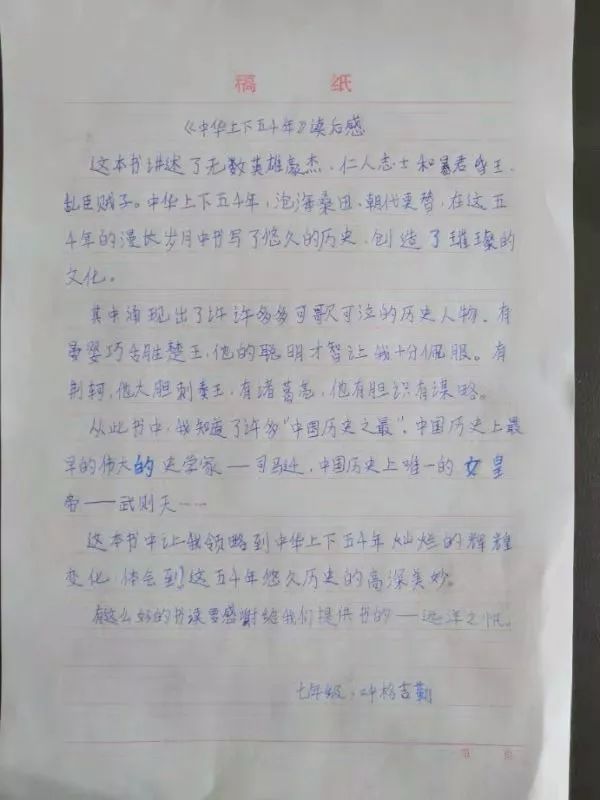 稿 纸
《中华上下五千年》读后感
这本书讲述了无数英雄豪杰、仁人志士和暴君昏王、
乱臣贼子。中华上下五千年，沧海桑田，朝代更替，在这五
千年的漫长岁月中书写了悠久的历史，创造了璀璨的
文化。
其中涌现出了许许多多可歌可泣的历史人物。有
晏婴巧舌胜楚王，他的聪明才智让我十分佩服。有
荆轲，他大胆刺秦王，有诸葛亮，他有胆识有谋略。
从此书中，我知道了许多"中国历史之最"，中国历史上最
早的伟大的史学家——司马迁，中国历史上唯一的女皇
帝——武则天……
这本书中让我领略到中华上下五千年灿烂的辉煌
变化，体会到了这五千年悠久历史的高深美妙。
有这么好的书读要感谢给我们提供书的——远洋之帆。
七年级：格吉勒
第 页